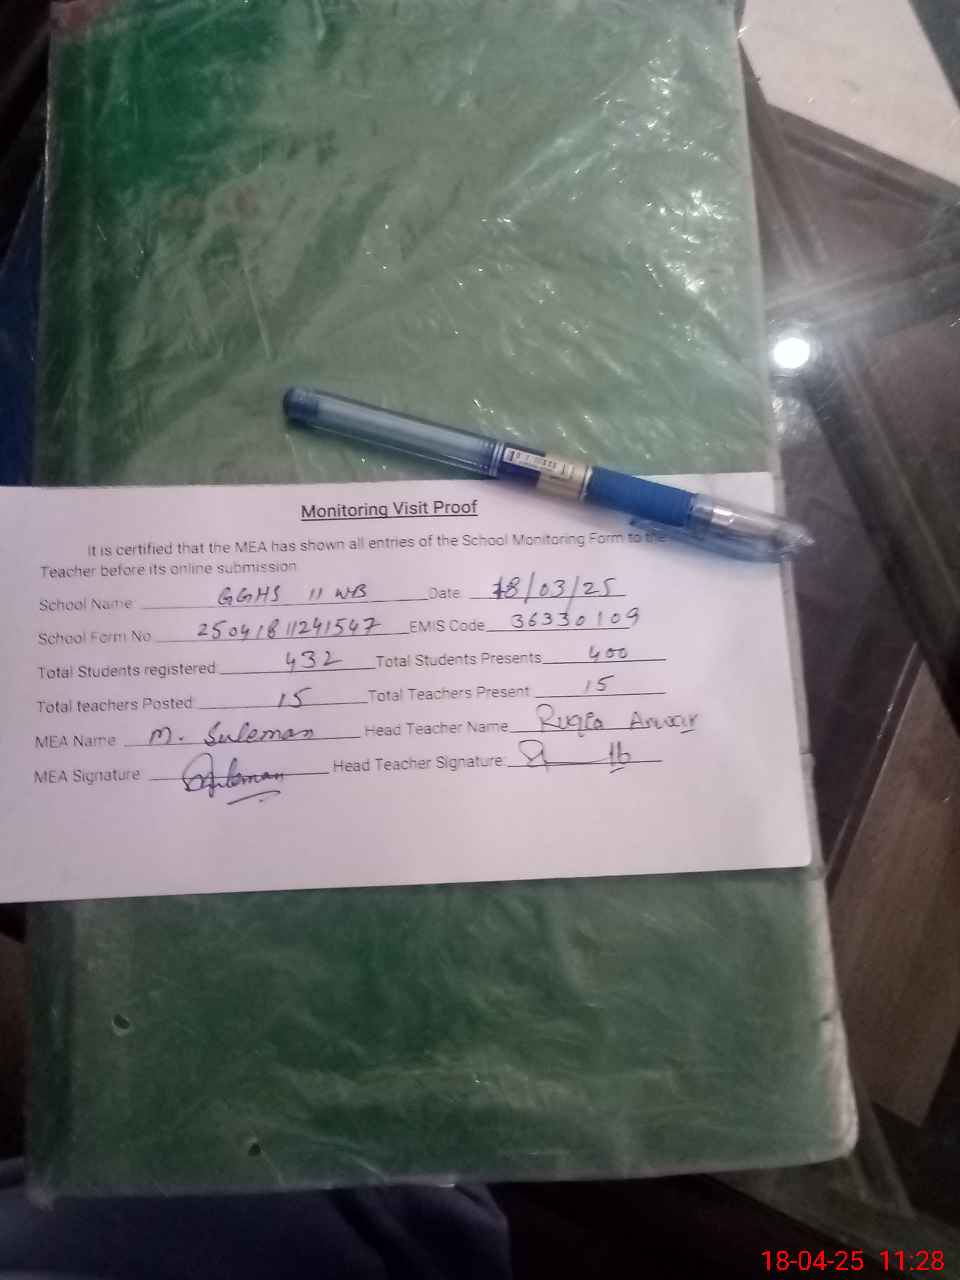 Monitoring Visit Proof
It is certified that the MEA has shown all entries of the School Monitoring Form to the
Teacher before its online submission
School Name GGHS 11 WB Date 18/03/25
School Form No 250418 11241547 EMIS Code 36330109
Total Students registered: 432 Total Students Presents 400
Total teachers Posted: 15 Total Teachers Present 15
MEA Name M. Suleman Head Teacher Name Ruqea Anwar
MEA Signature Suleman Head Teacher Signature:
18-04-25 11:28